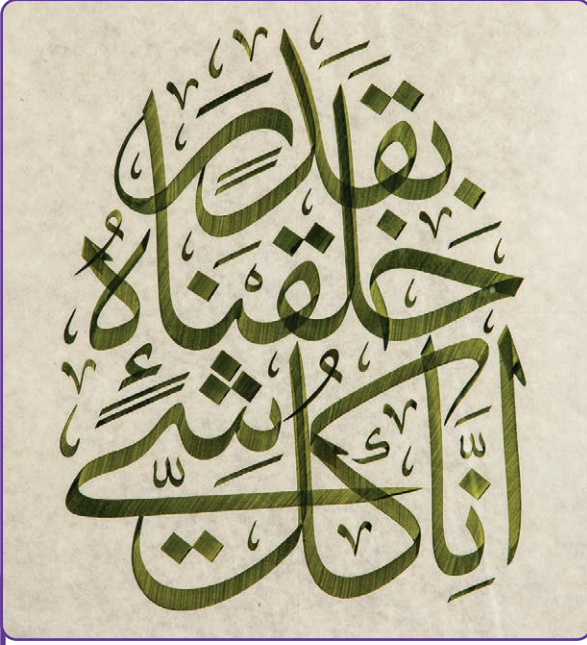 اِنَّا كُلَّ شَیْءٍ
خَلَقْنَاهُ
بِقَدَرٍ